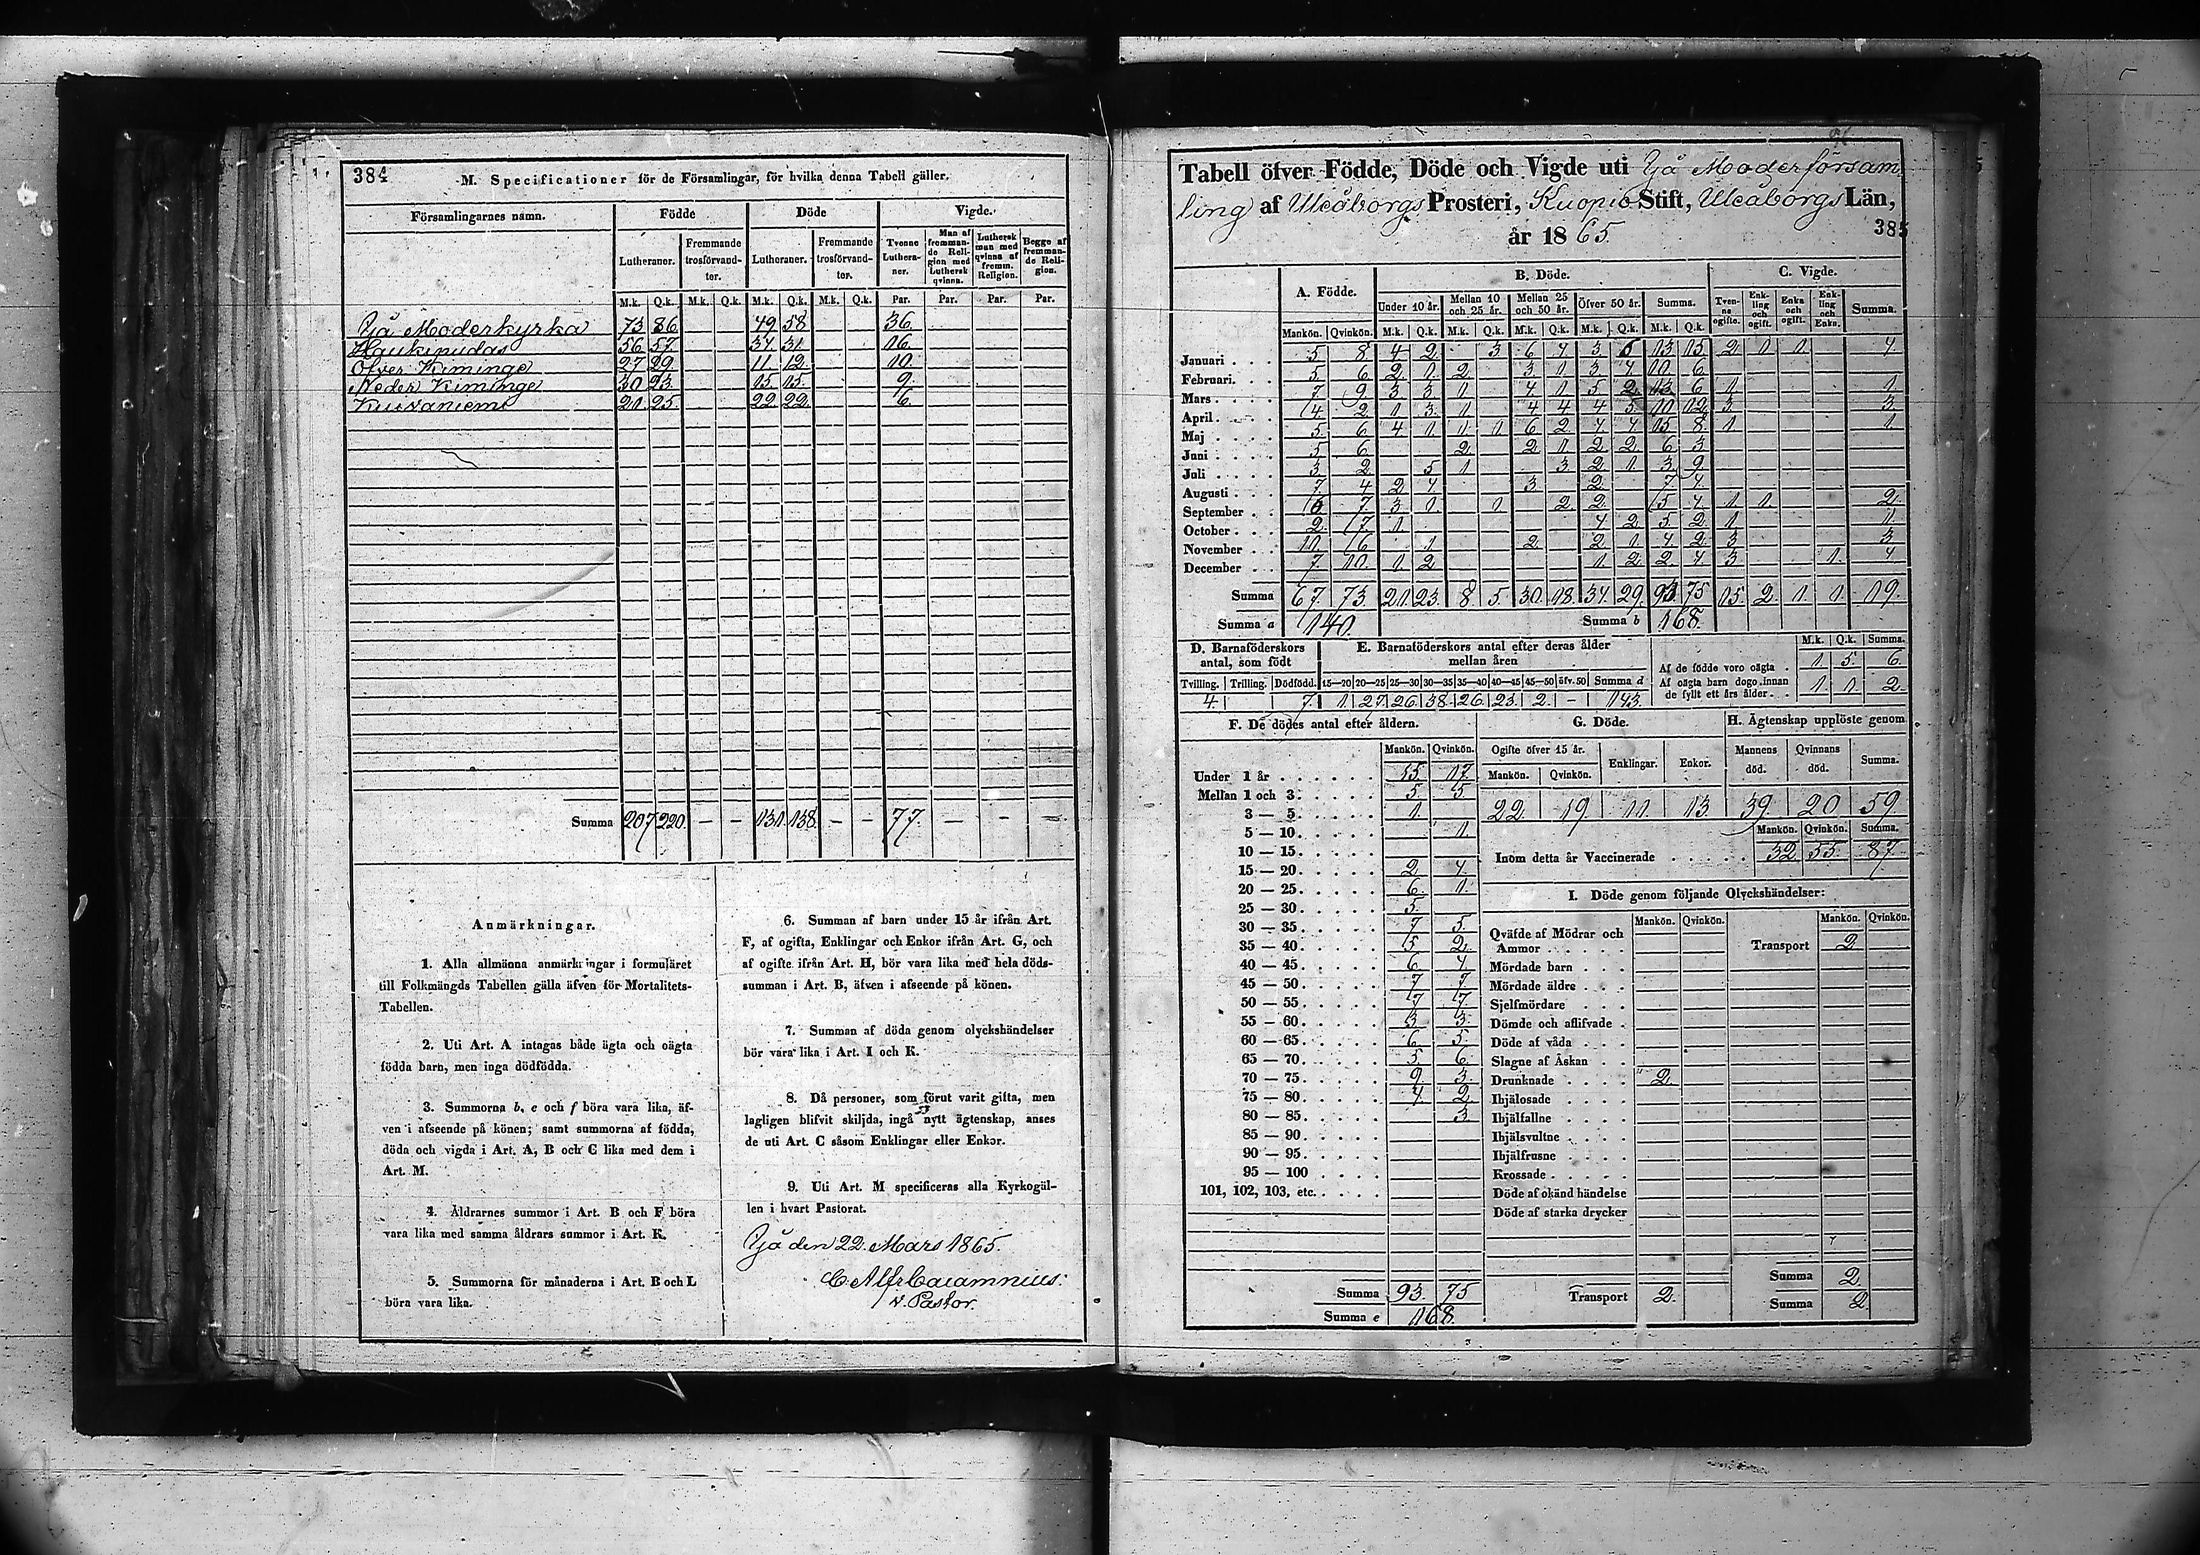 384
M. Specificationer för de Församlingar, för hvilka denna Tabell gäller.
Församlingarnes namn. Födde Döde Vigde.
Lutheraner. Fremmande trosförvandter. Lutheraner. Fremmande trosförvandter. Tvenne Lutheraner. Man af fremmande Religion med Luthersk qvinna. Luthersk man med qvinna af fremm. Religion. Begge af fremmande Religion.
M.k. Q.k. M.k. Q.k. M.k. Q.k. M.k. Q.k. Par. Par. Par. Par.
Ijå Moderkyrka 73 86 49 58 36.
Haukipudas 56 57 34 31. 16.
Öfver Kiminge 27 29 11 12 10.
Neder Kiminge 30 23 15 15. 9.
Kuivaniemi 21 25. 22 22. 6.
Summa 207 220. – – 131 138. – – 77. – – –
Anmärkningar.
1. Alla allmänna anmärkningar i formuläret
till Folkmängds Tabellen gälla äfven för Mortalitets-
Tabellen.
2. Uti Art. A intagas både ägta och oägta
födda barn, men inga dödfödda.
3. Summorna b, e och f böra vara lika, äf-
ven i afseende på könen; samt summorna af födda,
döda och vigda i Art. A, B och C lika med dem i
Art. M.
4. Åldrarnes summor i Art. B och F böra
vara lika med samma åldrars summor i Art. K.
5. Summorna för månaderna i Art. B och L
böra vara lika.
6. Summan af barn under 15 år ifrån Art.
F, af ogifta, Enklingar och Enkor ifrån Art. G, och
af ogifte ifrån Art. H, bör vara lika med hela döds-
summan i Art. B, äfven i afseende på könen.
7. Summan af döda genom olyckshändelser
bör vara lika i Art. I och K.
8. Då personer, som förut varit gifta, men
lagligen blifvit skiljda, ingå nytt ägtenskap, anses
de uti Art. C såsom Enklingar eller Enkor.
9. Uti Art. M specificeras alla Kyrkogäl-
len i hvart Pastorat.
Ijå den 22 Mars 1865.
v. Pastor.
Tabell öfver Födde, Döde och Vigde uti Ijå Moderförsam
ling af Uleåborgs Prosteri, Kuopio Stift, Uleåborgs Län,
år 1865.
385
A. Födde. B. Döde. C. Vigde.
Under 10 år. Mellan 10 och 25 år. Mellan 25 och 50 år. Öfver 50 år. Summa. Tvenne ogifte. Enkling och ogift. Enka och ogift. Enkling och Enka. Summa.
Mankön. Qvinkön. M.k. Q.k. M.k. Q.k. M.k. Q.k. M.k. Q.k. M.k. Q.k.
Januari 5 8 4 2 3 6 4 3 6 13 15 2 1 1 4
Februari 5 6 2 1 2 3 1 3 4 10 6
Mars 7 9 3 3 1 4 1 5 2 13 6 1 1
April 4 2 1 3 1 4 4 4 5 10 12 3 3
Maj 5 6 4 1 1 1 6 2 4 4 15 8 1 1
Juni 5 6 2 2 1 2 2 6 3
Juli 3 2 5 1 3 2 1 3 9
Augusti 7 4 2 4 3 2 7 4
September 6 7 3 1 1 2 2 5 4 1 1 2
October 2 7 1 4 2 5 2 1 1
November 11 6 1 2 2 1 4 2 3 3
December 7 10 1 2 1 2 2 4 3 1 4
Summa 67 73. 21 23. 8 5. 30 18. 34 29. 93 75 15 2 1 1 19.
Summa a 140. Summa b 168.
D. Barnaföderskors antal, som födt
E. Barnaföderskors antal efter deras ålder mellan åren
M.k. Q.k. Summa.
Af de födde voro oägta 1 5 6
Af oägta barn dogo innan de fyllt ett års ålder 1 1 2
Tvilling. Trilling. Dödfödd. 15—20 20—25 25—30 30—35 35—40 40—45 45—50 öfv. 50 Summa d
4 7 1 27 26 38 26 23 2 – 143
F. De dödes antal efter åldern.
Mankön. Qvinkön.
Under 1 år 15 17
Mellan 1 och 3 5 5
3 — 5 1
5 — 10 1
10 — 15
15 — 20 2 4
20 — 25 6 1
25 — 30 5
30 — 35 7 5
35 — 40 5 2
40 — 45 6 4
45 — 50 7 7
50 — 55 7 7
55 — 60 3 3
60 — 65 6 5
65 — 70 5 6
70 — 75 9 3
75 — 80 4 2
80 — 85 3
85 — 90
90 — 95
95 — 100
101, 102, 103, etc.
Summa 93. 75
Summa e 168.
G. Döde.
Ogifte öfver 15 år. Enklingar. Enkor.
Mankön. Qvinkön.
22 19 11 13
H. Ägtenskap upplöste genom
Mannens död. Qvinnans död. Summa.
39 20 59
Mankön. Qvinkön. Summa.
Inom detta år Vaccinerade 32 55 87
I. Döde genom följande Olyckshändelser:
Mankön. Qvinkön. Mankön. Qvinkön.
Qväfde af Mödrar och Ammor Transport 2
Mördade barn
Mördade äldre
Sjelfmördare
Dömde och aflifvade
Döde af våda
Slagne af Åskan
Drunknade 2
Ihjälosade
Ihjälfallne
Ihjälsvultne
Ihjälfrusne
Krossade
Döde af okänd händelse
Döde af starka drycker
Summa 2
Transport 2 Summa 2